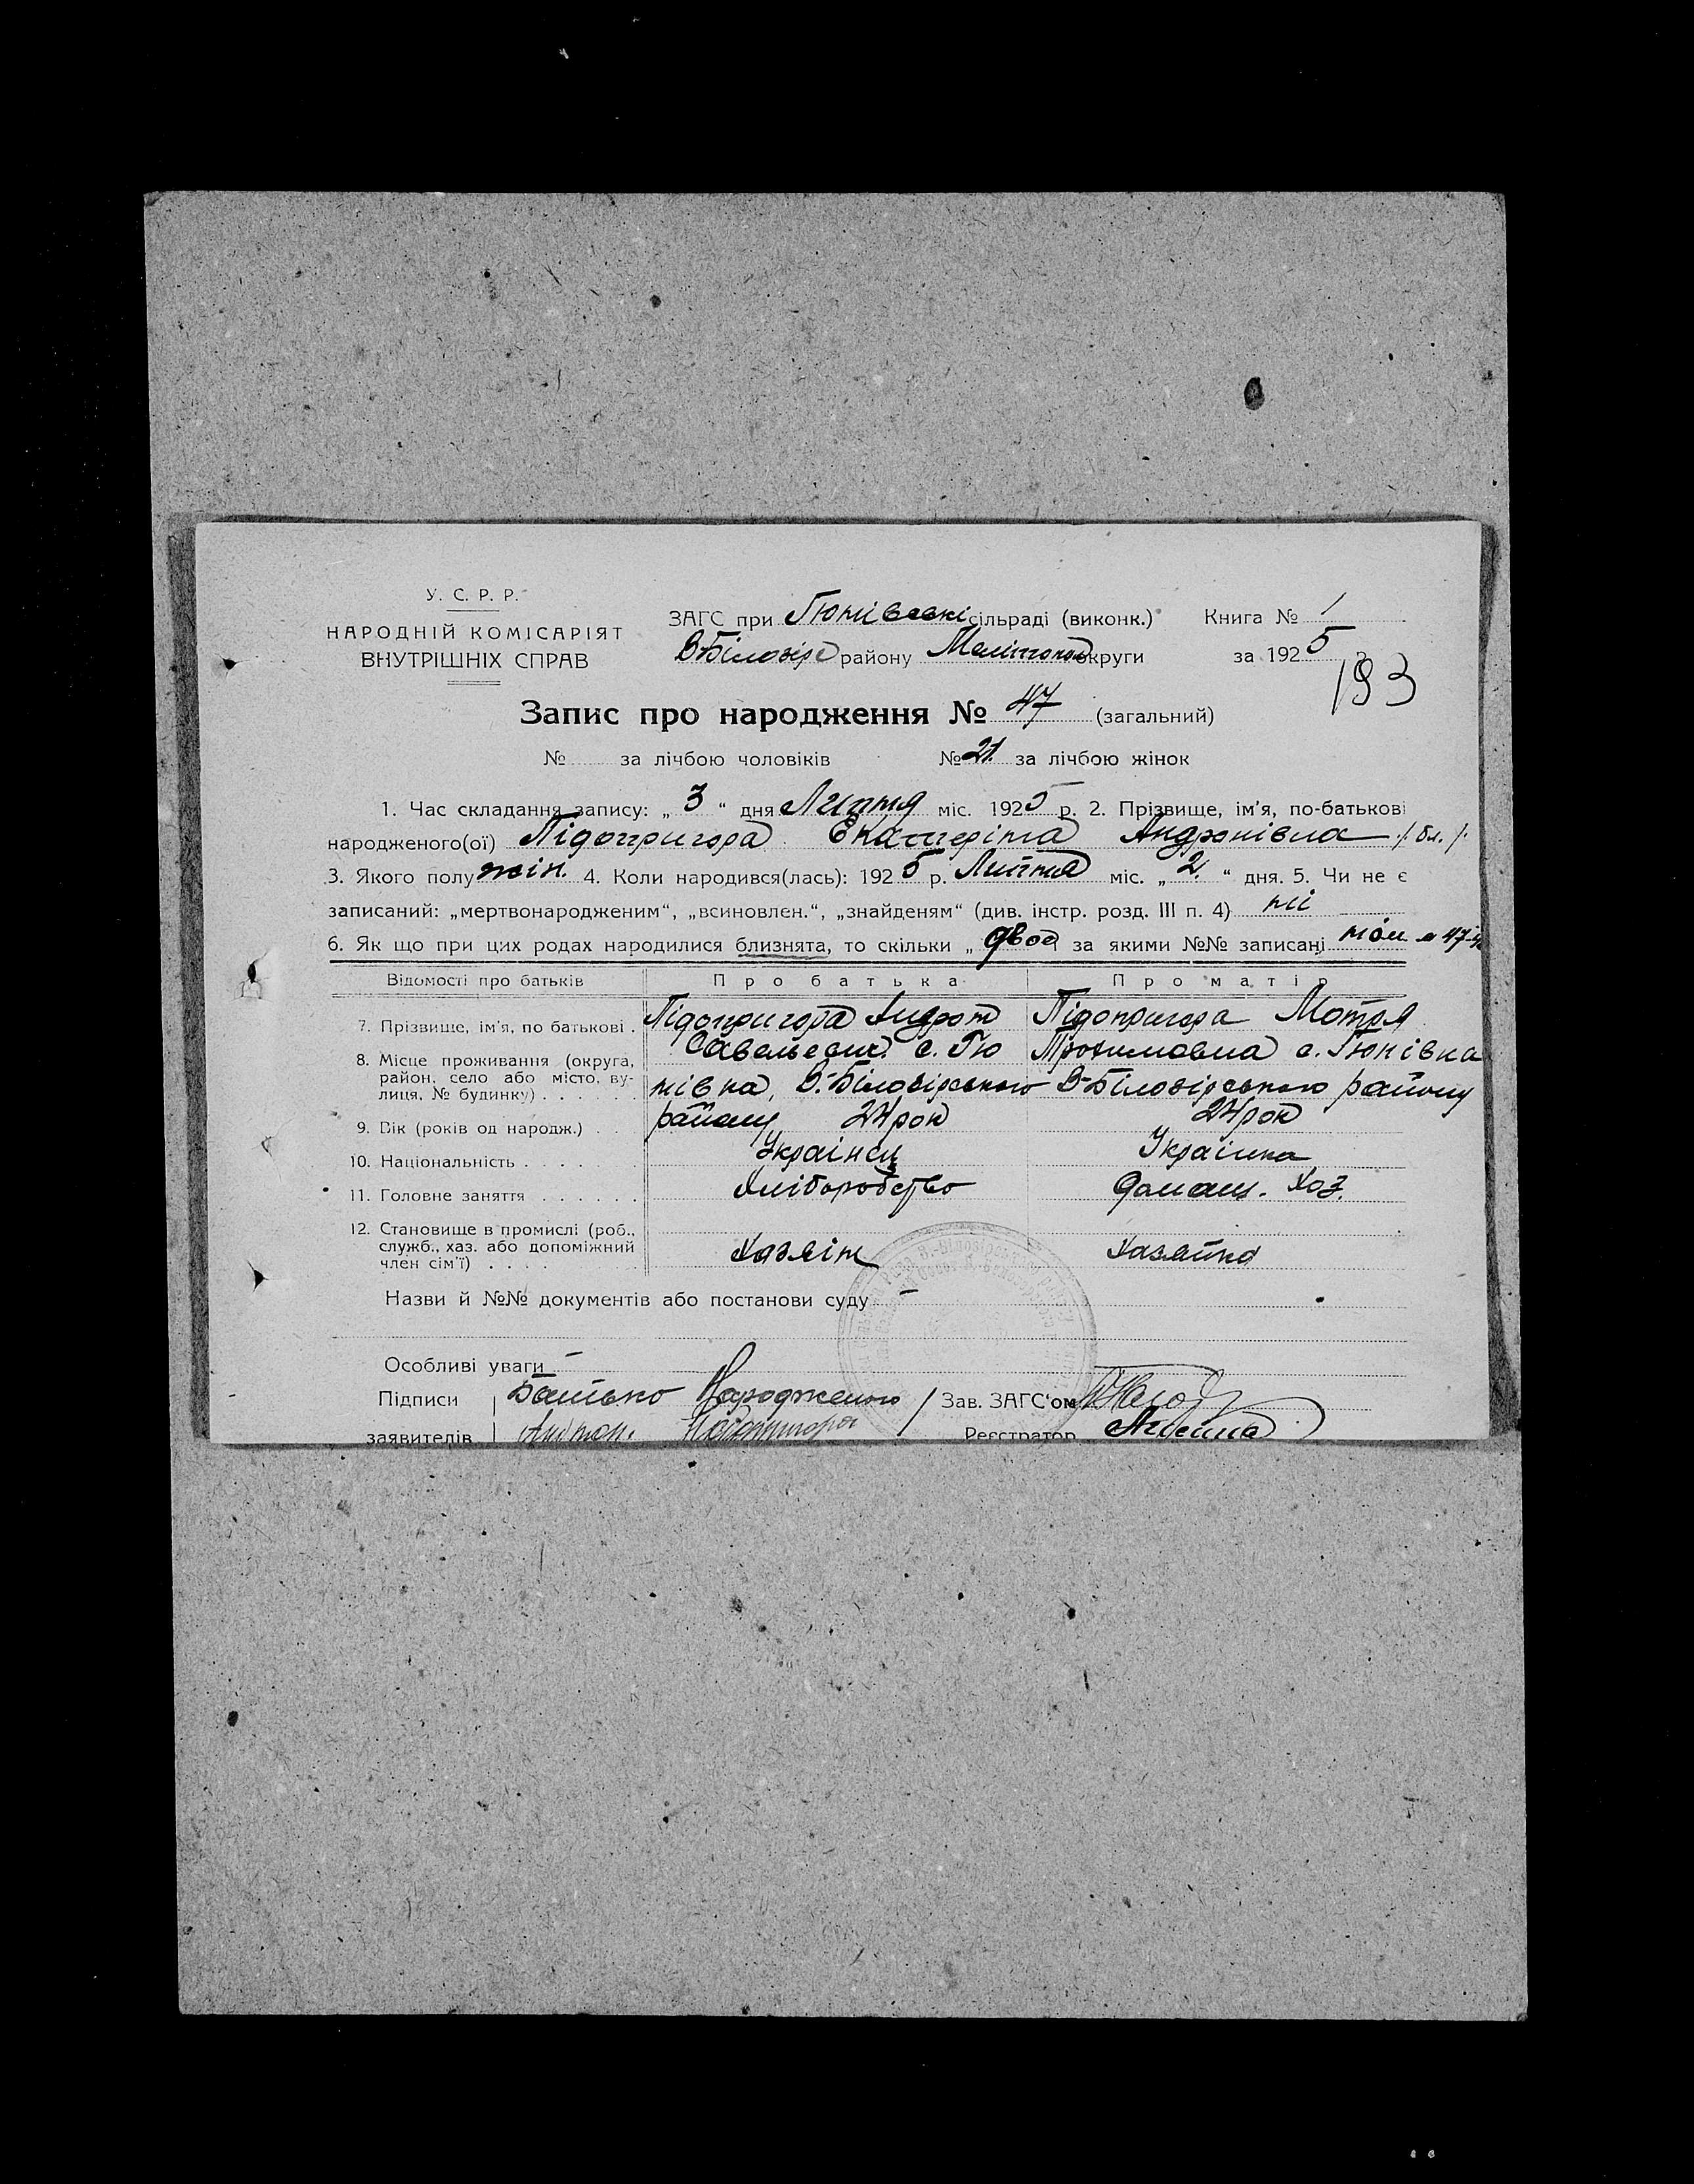 У. С. Р. Р.
НАРОДНІЙ КОМІСАРІЯТ
ВНУТРІШНІХ СПРАВ
ЗАГС при Гюнівські сільраді (виконк.) Книга № 1
В-Білозірс району Мелітопол округи за 1925
193
Запис про народження № 47 (загальний)
№ за лічбою чоловіків № 21. за лічбою жінок
1. Час складання запису: „ 3 “ дня Липня міс. 1925 р. 2. Прізвище, ім’я, по-батькові
народженого(ої) Підопригора Екатеріна Андронівна /бл./
3. Якого полу жін. 4. Коли народився(лась): 1925 р. Липня міс. „ 2. “ дня. 5. Чи не є
записаний: „мертвонародженим“, „всиновлен.“, „знайденям“ (див. інстр. розд. III п. 4) ні
6. Як що при цих родах народилися близнята, то скільки „ двоє за якими №№ записані
Відомості про батьків Про батька Про матір
7. Прізвище, ім’я, по батькові . Підопригора Андрон Підопригора Мотря
Савельевич. с. Гю Трохимовна с. Гюнівка
8. Місце проживання (округа, район, село або місто, вулиця, № будинку) . . . . . . нівка, В.-Білозірського В-Білозірського району
району 24 рок 24 рок
9. Вік (років од народж.) . .
10. Національність . . . . Українец Українка
11. Головне заняття . . . . . . Хліборобство домаш. Хоз.
12. Становище в промислі (роб., служб., хаз. або допоміжний член сім’ї) . . . . Хазяін Хазяйка
Назви й №№ документів або постанови суду –
Особливі уваги –
Підписи Батько Народженого Зав. ЗАГС‘ом
заявителів Підопригора Реєстратор